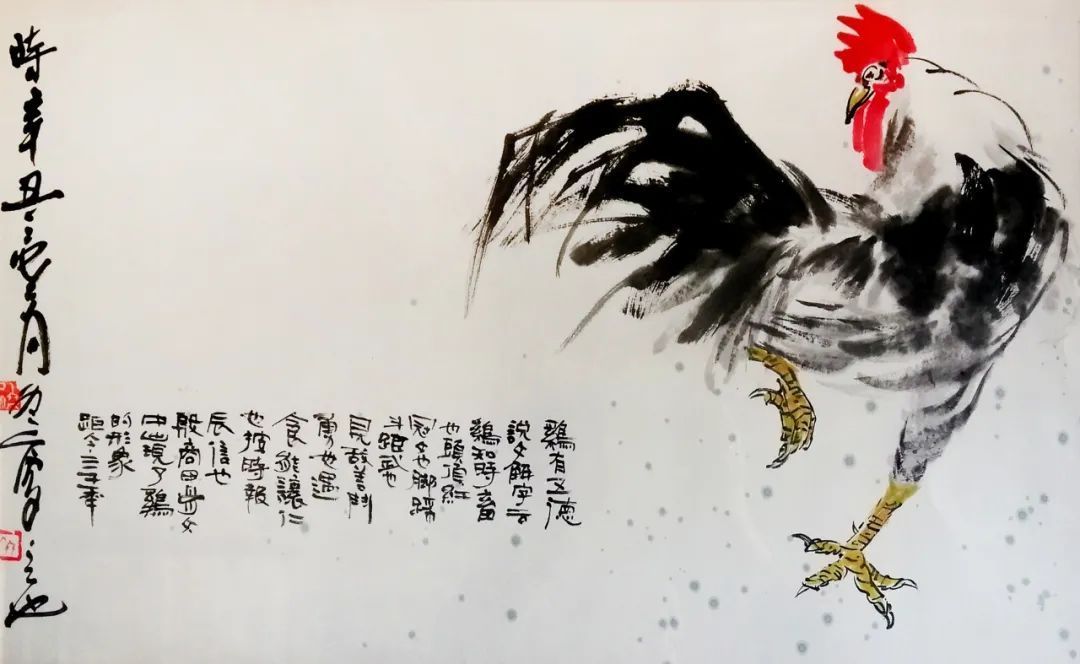 鷄有五德
說文解字云
鷄知時畜
也頭頂紅
冠文也脚
斗距武也
見敌善鬥
勇也遇
食能讓仁
也按時報
辰信也
殷商甲骨文
中出現了鷄
的形象
距今三千年
時辛丑
月
之也